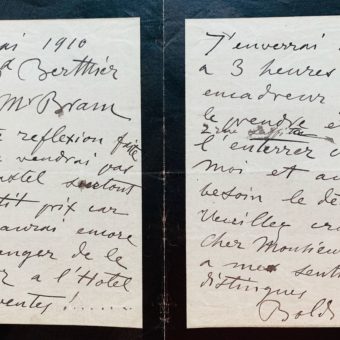 ai 1910
Berthier
Mr Bram
reflexion faite
vendrai pas
astel surtout
tit prix car
aurai encore
anger de le
r a l'Hotel
ventes!......
J'enverrai
a 3 heures
encadreur
le prendre
l'enterrer
moi et au
besoin le dé
Veuillez cro
cher Monsieu
a mes senti
distingués
Bold